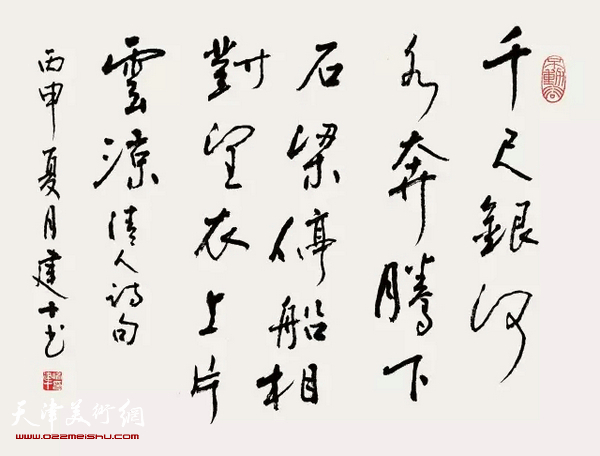 千尺銀河
水奔騰下
石梁停船相
對望衣上片
雲涼 清人詩句
丙申夏月建书
天津美術網
www.022meishu.com